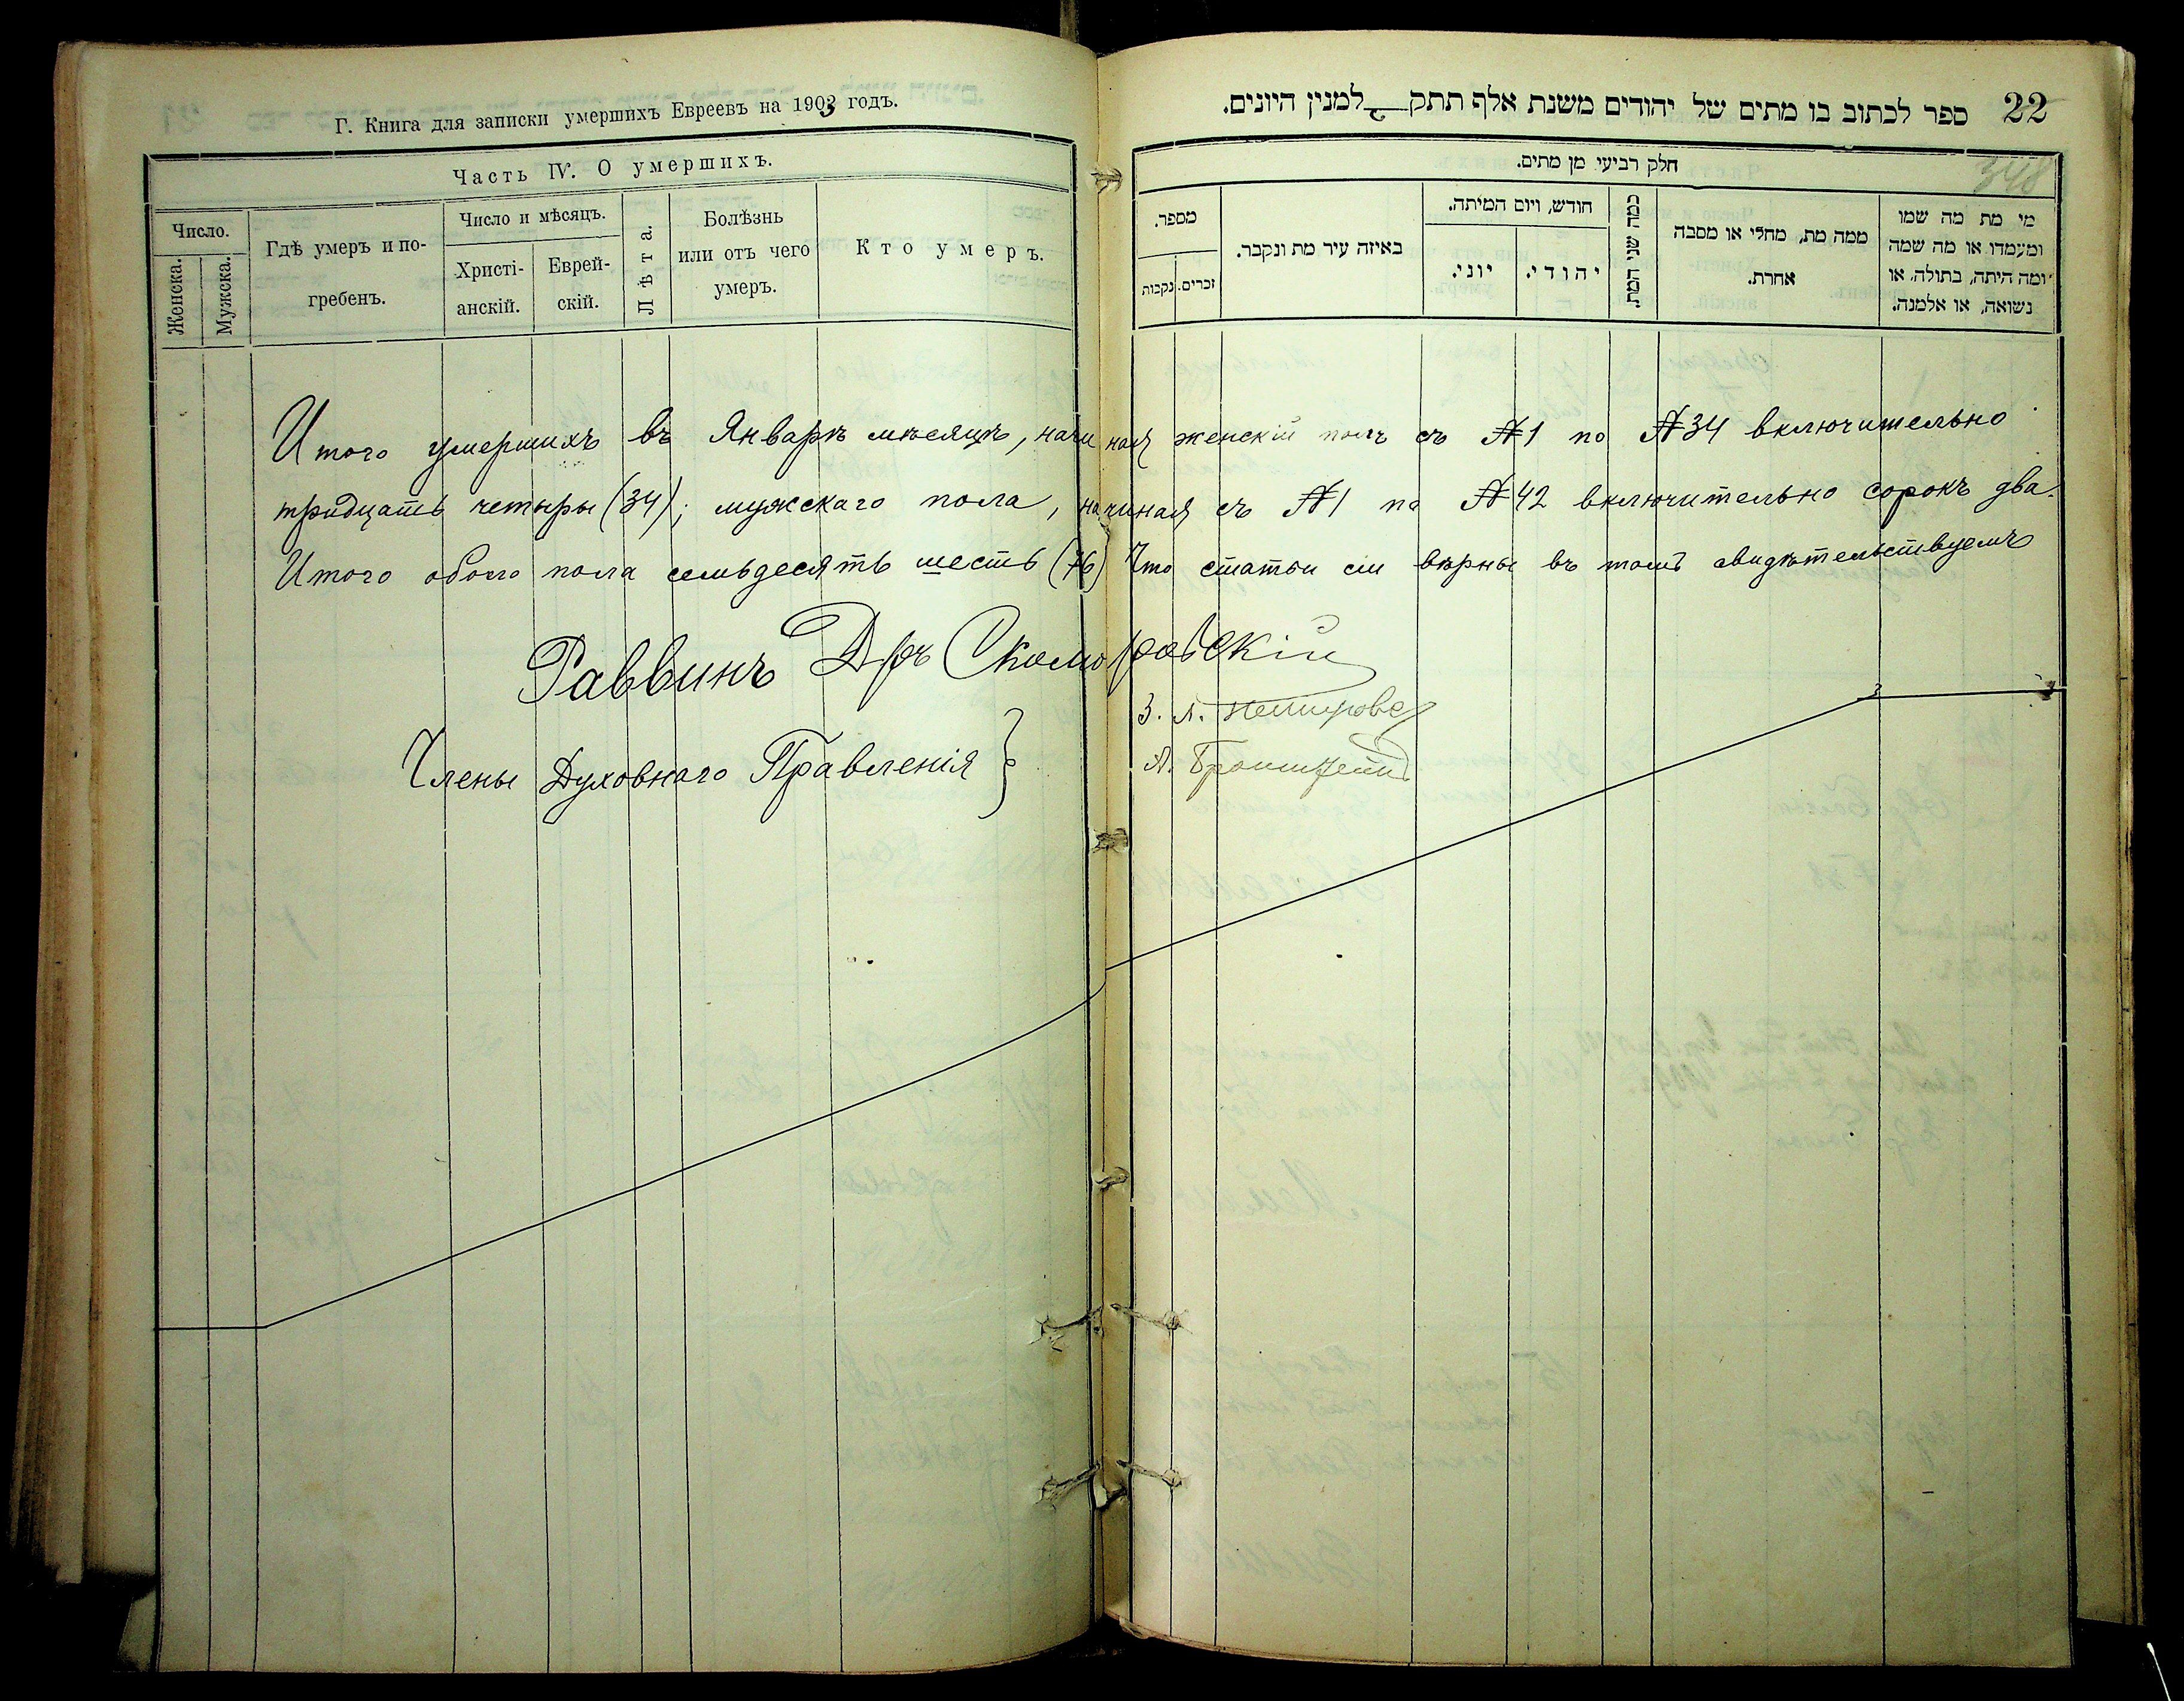 Г. Книга для записки умершихъ Евреевъ на 1903 годъ.
Часть IV. О умершихъ.
Число.
Женска.
Мужска.
Гдѣ умеръ и по-
гребенъ.
Число и мѣсяцъ.
Христі-
анскій.
Еврей-
скій.
Лѣта.
Болѣзнь
или отъ чего
умеръ.
Кто умеръ.
22
ספר לכתוב בו מתים של יהודים משנת אלף תתק ג למנין היונים.
348
חלק רביעי מן מתים.
מספר.
זכרים.
נקבות
באיזה עיר מת ונקבר.
חודש, ויום המיתה.
יוני.
יהודי.
כמה שני המת.
ממה מת, מחלי או מסבה
אחרת.
מי מת מה שמו
ומעמדו או מה שמה
ומה היתה, בתולה, או
נשואה, או אלמנה.
Итого умершихъ въ Январѣ мѣсяцѣ, начиная женскій полъ съ №1 по №34 включительно
тридцать четыры (34); мужскаго пола, начиная съ №1 по №42 включительно сорокъ два.
Итого обоего пола семьдесять шесть (76) Что статьи сіи вѣрны въ томъ свидѣтельствуемъ
Раввинъ Д-ръ Скоморовскій
Члены Духовнаго Правленія }